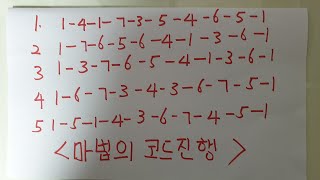 1. 1-4-1-7-3-5-4-6-5-1
2 1-7-6-5-6-4-1-3-6-1
3 1-3-7-6-5-4-1-3-6-1
4 1-6-7-3-4-3-6-7-5-1
5 1-5-1-4-3-6-7-4-5-1
<마법의 코드진행>